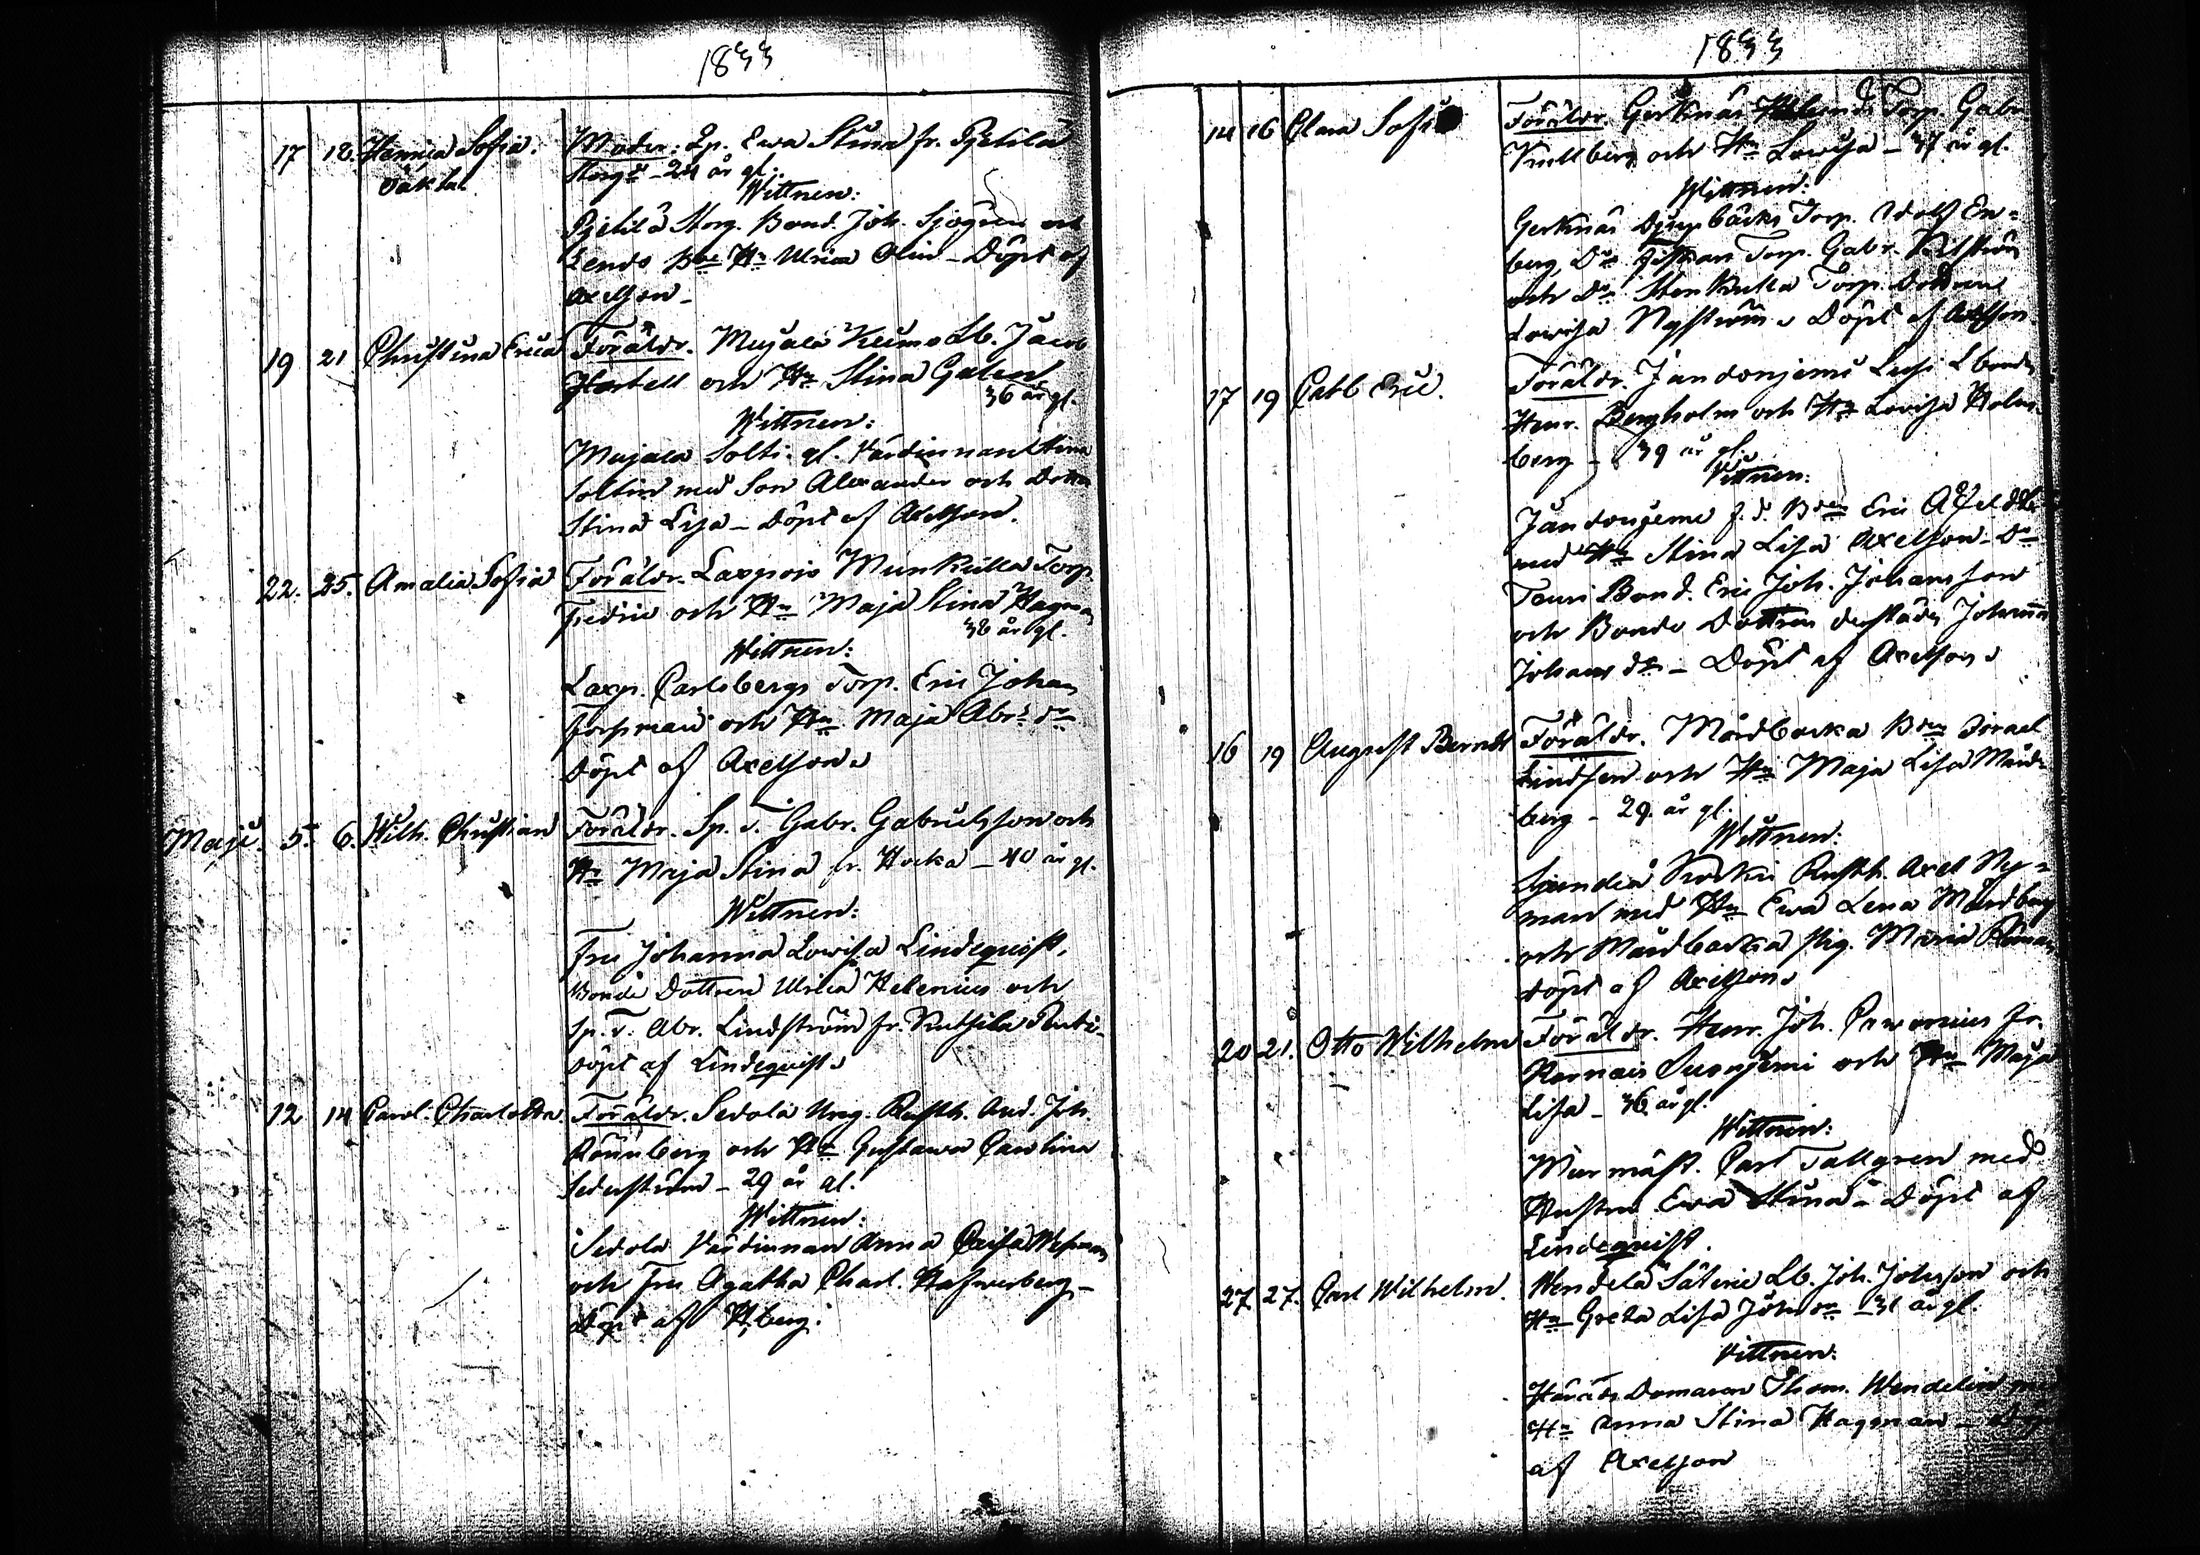 1833
17 18. Henrica Sofia. Moder: Ip. Ewa Stina fr. Pjelilä
oäkta Storg. - 24 år gl.
Wittnen:
Pjelilä Storg. Bond. Joh. Sjögren och
Hu Ulrica Olin - Döpt af
Axelson -
19 21 Christina Erica Föräldr. Mujala Lb. Jacob
Hertell och Hu Stina Galen
36 år gl.
Wittnen:
Mujala Solti gl. Värdinnan Stina
Soltin med Son Alexander och Dottren
Stina Lisa - Döpt af Axelson.
22. 25. Amalia Sofia Föräldr. Laxpojo Munkulla Torp.
Fredric och Hu Maja Stina Hagman
38 år gl.
Wittnen:
Laxp. Carlsbergs Torp. Eric Johan
Forsman och Hu Maja Abr. dr
Döpt af Axelson
Maji. 5. 6. Wilh. Christian Föräldr. Sp. T. Gabr. Gabrielsson och
Hu Maja Stina fr. Hocka - 40 år gl.
Wittnen:
Fru Johanna Lowisa Lindequist,
Bonde Dottren Ulrica Helenius och
Sp. T. Abr. Lindström fr.
Döpt af Lindequist
12 14 Carol. Charlotta. Föräldr. Sedola Rusth. And. Joh.
Rönnberg och Hu Gustava Carolina
Sederström - 29 år gl.
Wittnen:
Sedola Värdinnan Anna Caisa
och Fru Agatha Charl. Hafwerberg -
Döpt af H,berg.
1833
14 16 Clara Sofia Föräldr. Gerknäs Torp. Gabr.
och Hu Lovisa - 37 år gl.
Wittnen:
Gerknäs Djupbäcks Torp. Adolf En=
berg, Do Torp. Gabr.
och Do Stenkulla Torp. Dottren
Lovisa Nyström Döpt af Axelson
17 19 Carl Eric. Föräldr. Jandonjemi L bond.
Henr. Bergholm och Hu Lovisa Holm=
berg - 39 år gl.
Wittnen:
Jandonjemi f. d. Bden Eric
med Hu Stina Lisa Axelson - Do
Bond. Eric Joh. Johansson
och Bonde Dottren derstädes Johanna
Johans dr - Döpt af Axelson
16 19 August Berndt Föräldr. Mårdbacka Bden Israel
Lindsen och Hu Maja Lisa Mård=
berg - 29. år gl.
Wittnen:
Sjundeå Rusth. Axel Ny=
man med Hu Ewa Lena Mårdberg
och Mårdbacka Pig. Maria
Döpt af Axelson
20 21. Otto Wilhelm Föräldr. Henr. Joh. fr.
Karnais Suonjemi och Hu Maja
Lisa - 36 år gl.
Wittnen:
Murmäst. Carl Tallgren med
Hustru Ewa Stina - Döpt af
Lindequist.
27 27. Carl Wilhelm. Wendela Säterie Lb. Joh. Johnson och
Hu Greta Lisa Joh. dr - 31 år gl.
Wittnen:
Härads Domaren Thom. Wendelin
Hu Anna Stina Hagman -
af Axelson